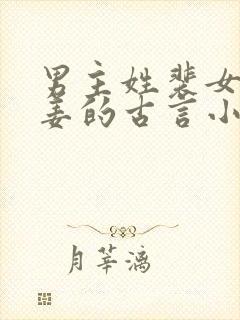 男主姓裴女
姜的古言小
月莘漓